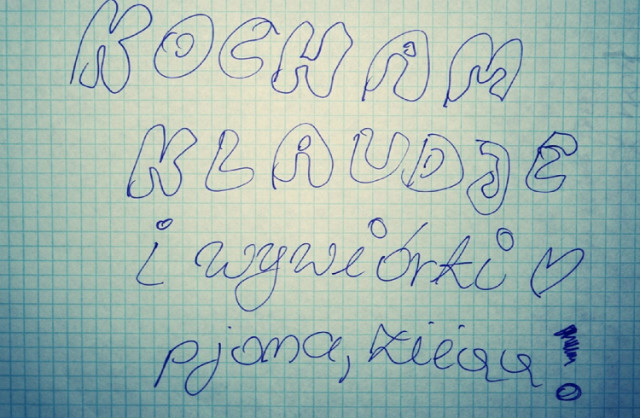 KOCHAM
KLAUDJE
i wywiórki ♡
pjona, zięcu!